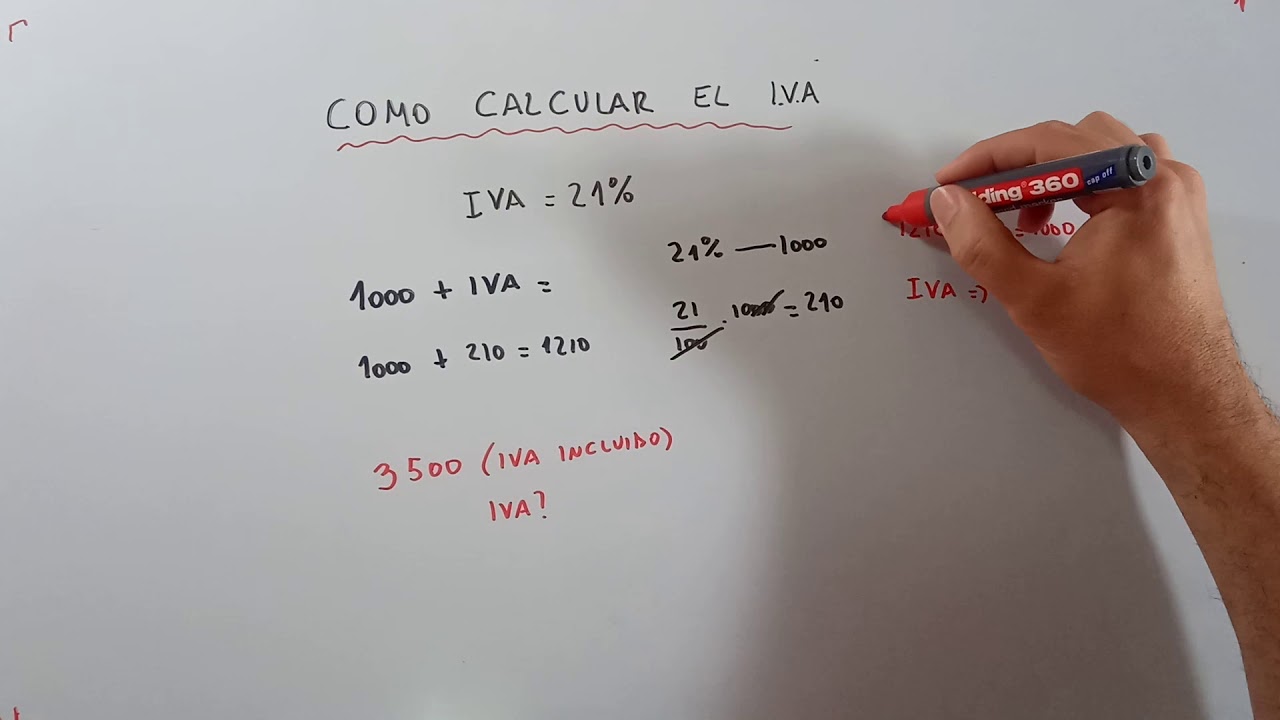 COMO CALCULAR EL I.V.A
IVA = 21%
1000 + IVA =
1000 + 210 = 1210
21% — 1000
21/100 · 1000 = 210
= 1000
IVA =>
3500 (IVA INCLUIDO)
IVA?
360
cap off